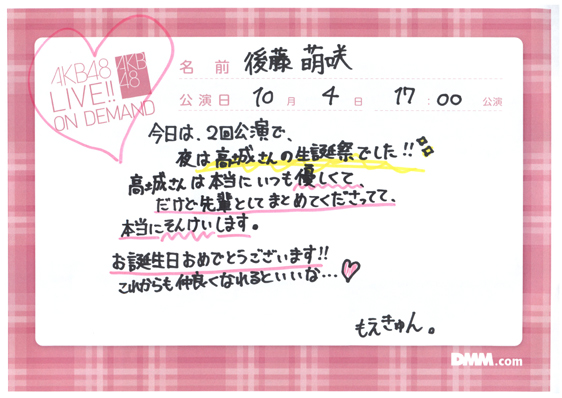 AKB48
LIVE!!
ON DEMAND
AKB
48
名前 後藤 萌咲
公演日 10月 4日 17:00 公演
今日は、2回公演で、
夜は高城さんの生誕祭でした!!
高城さんは本当にいつも優しくて、
だけど先輩としてまとめてくださってて、
本当にそんけいします。
お誕生日おめでとうございます!!
これからも仲良くなれるといいな…
もえきゅん。
DMM.com